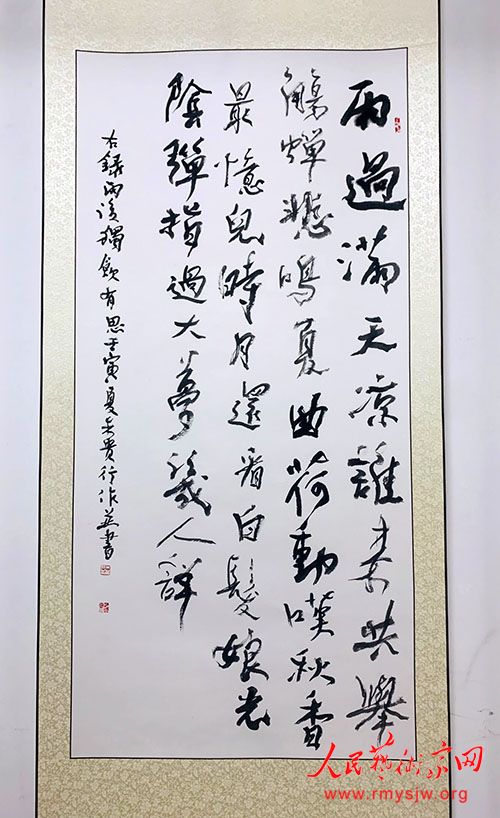 雨過滿天凉誰來共舉
觴蟬悲鳴夏曲荷動嘆秋香
最憶兒時月還看白髮娘光
陰彈指過大夢幾人詳
右錄雨後獨飲有思壬寅夏貴行作並書
人民藝術家网
www.rmysjw.org